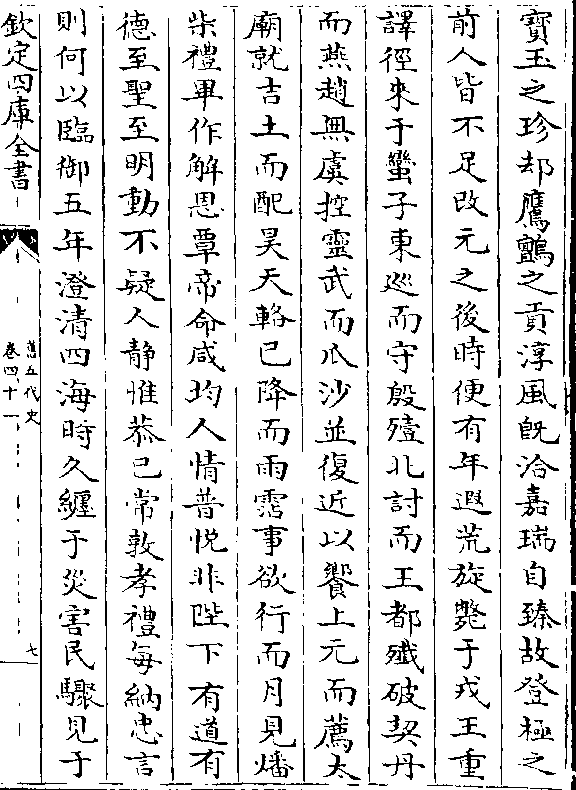 寶玉之珍却鷹鸇之貢淳風旣洽嘉瑞自臻故登極之
前人皆不足改元之後時便有年遐荒旋斃于戎王重
譯徑來于蠻子東巡而守殷殪北討而王都殲破契丹
而燕趙無虞控靈武而瓜沙並復近以饗上元而薦太
廟就吉土而配昊天輅已降而雨霑事欲行而月見燔
柴禮畢作解恩覃帝命咸均人情普悅非陛下有道有
德至聖至明動不疑人静惟恭己常敦孝禮每納忠言
則何以臨御五年澄清四海時久纏于災害民驟見于
欽定四庫全書
舊五代史
卷四十一
七